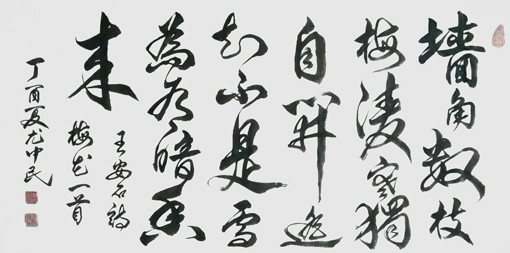 墙角数枝
梅凌寒獨
自開遥
知不是雪
為有暗香
来
王安石詩
梅花一首
丁酉夏尤中民